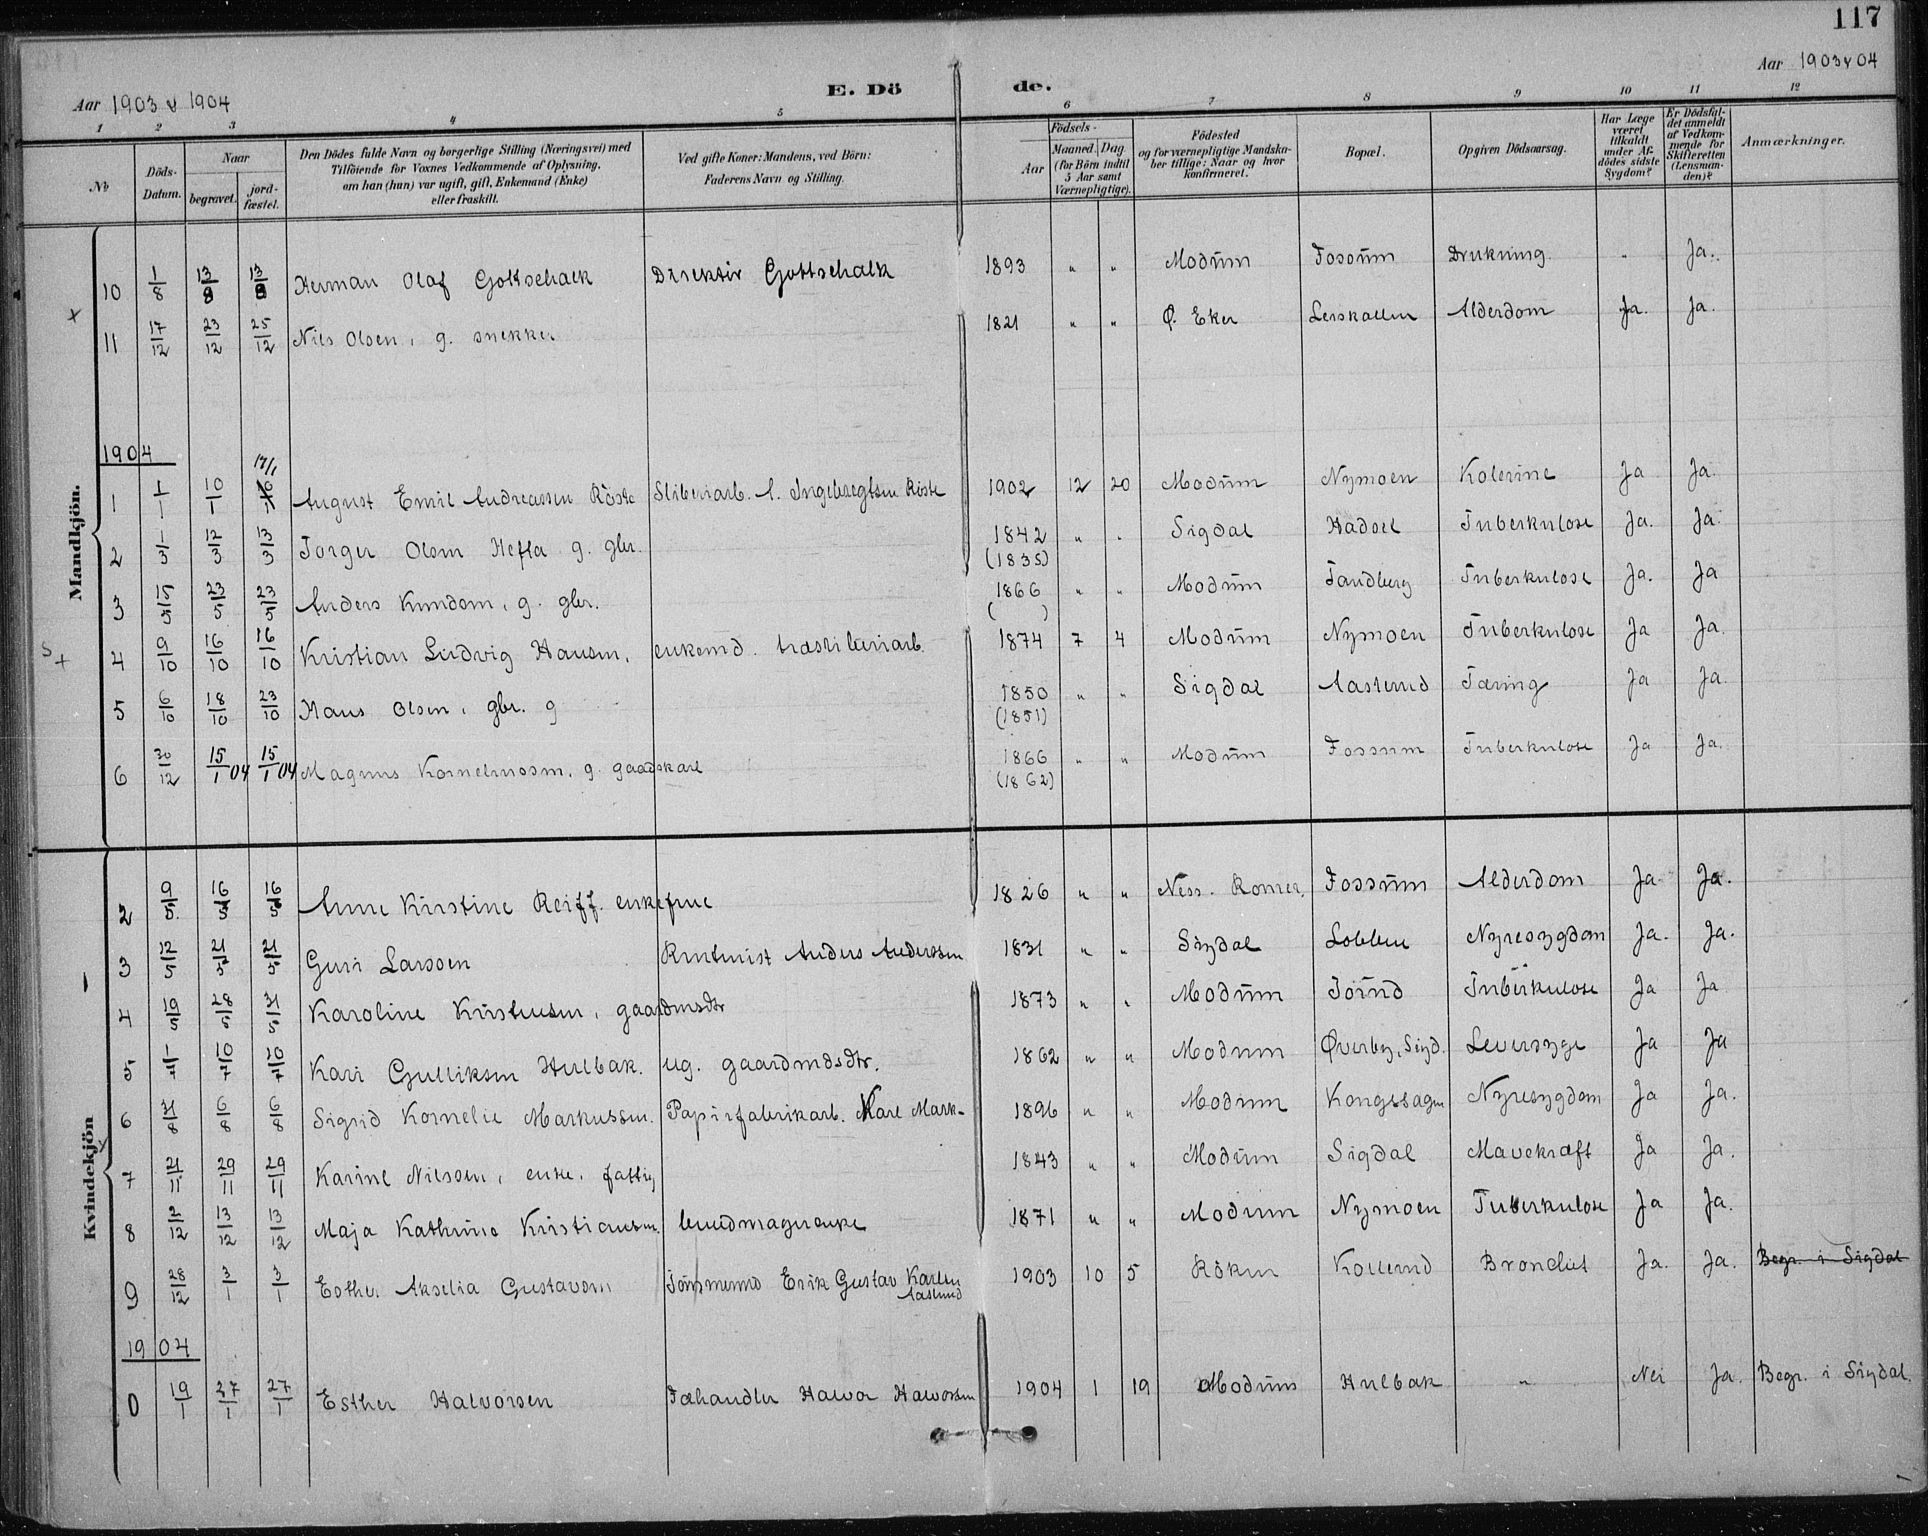 117
Aar 1903 & 1904 E. Dö de. Aar 1903 & 04
1 2 3 4 5 6 7 8 9 10 11 12
No
Döds-Datum.
Naar
begravet.
jord-fæstet.
Den Dödes fulde Navn og borgerlige Stilling (Næringsvei) med
Tilföiende for Voxnes Vedkommende af Oplysning,
om han (hun) var ugift, gift, Enkemand (Enke)
eller fraskilt.
Ved gifte Koner: Mandens, ved Börn:
Faderens Navn og Stilling.
Födsels-
Aar
Maaned. Dag
(for Börn indtil
5 Aar samt
Værnepligtige).
Födested
og for værnepligtige Mandska-
ber tillige: Naar og hvor
konfirmeret.
Bopæl.
Opgiven Dödsaarsag.
Har Læge
været
tilkaldt
under Af-
dödes sidste
Sygdom?
Er Dödsfal-
det anmeldt
af Vedkom-
mende for
Skifteretten
(Lensman-
den)?
Anmærkninger.
Mandkjön.
10 1/8 13/8 13/8 Herman Olaf Gottschalk Direktör Gottschalk 1893 " " Modum Fossum Drukning " Ja.
x
11 17/12 23/12 25/12 Nils Olsen, g. snekker 1821 " " Ø. Eker Lerskallen Alderdom Ja. Ja.
1904
1 1/1 10/1 17/1 August Emil Andreassen Röste Sliberiarb. A. Ingebregtsen Röste 1902 12 20 Modum Nymoen Kolerine Ja Ja.
2 1/3 12/3 13/3 Torger Olsen Hefta g. gbr. 1842 " " Sigdal Hadsel Tuberkulose Ja. Ja.
(1835)
3 15/5 23/5 23/5 Anders Knudsen, g. gbr. 1866 " " Modum Tandberg Tuberkulose Ja. Ja
( )
S +
4 9/10 16/10 16/10 Kristian Ludvig Hansen, enkemd. træsliberiarb. 1874 7 4 Modum Nymoen Tuberkulose Ja Ja.
5 6/10 18/10 23/10 Hans Olsen, gbr. g 1850 " " Sigdal Aasterud Tæring Ja Ja.
(1851)
6 30/12 15/1 04 15/1 04 Magnus Korneliussen, g. gaardskarl 1866 " " Modum Fossum Tuberkulose Ja Ja.
(1862)
Kvindekjön
2 9/5 16/5 16/5 Anne Kirstine Reiff. enkefrue 1826 " " Ness. Romer. Fossum Alderdom Ja Ja.
3 12/5 21/5 21/5 Guri Larssen Anders Anderssen 1831 " " Sigdal Loblen Nyresygdom Ja. Ja.
4 19/5 28/5 31/5 Karoline Kristensen, gaardmsdtr 1873 " " Modum Tuberkulose Ja Ja
5 1/7 10/7 20/7 Kari Gulliksen Hulbak. ug. gaardmdsdtr. 1862 " " Modum Øverby, Sigd. Leversyge Ja Ja
6 31/8 6/8 6/8 Sigrid Kornelie Markussen. Papirfabrikarb. Karl Mark- 1896 " " Modum Kongssagen Nyresygdom Ja Ja.
7 21/11 29/11 29/11 Karine Nilssen, enke, fattig 1843 " " Modum Sigdal Mavekræft Ja Ja.
8 2/12 13/12 13/12 Maja Kathrine Kristiansen. 1871 " " Modum Nymoen Tuberkulose Ja Ja.
9 28/12 3/1 3/1 Esther Akselia Gustavsen Tömmermd Erik Gustav Karlsen 1903 10 5 Röken Kollerud Bronchit Ja. Ja. Begr. i Sigdal
Aaslund
1904
0 19/1 27/1 27/1 Esther Halvorsen Fæhandler Halvor Halvorsen 1904 1 19 Modum Hulbak " Nei Ja. Begr. i Sigdal.